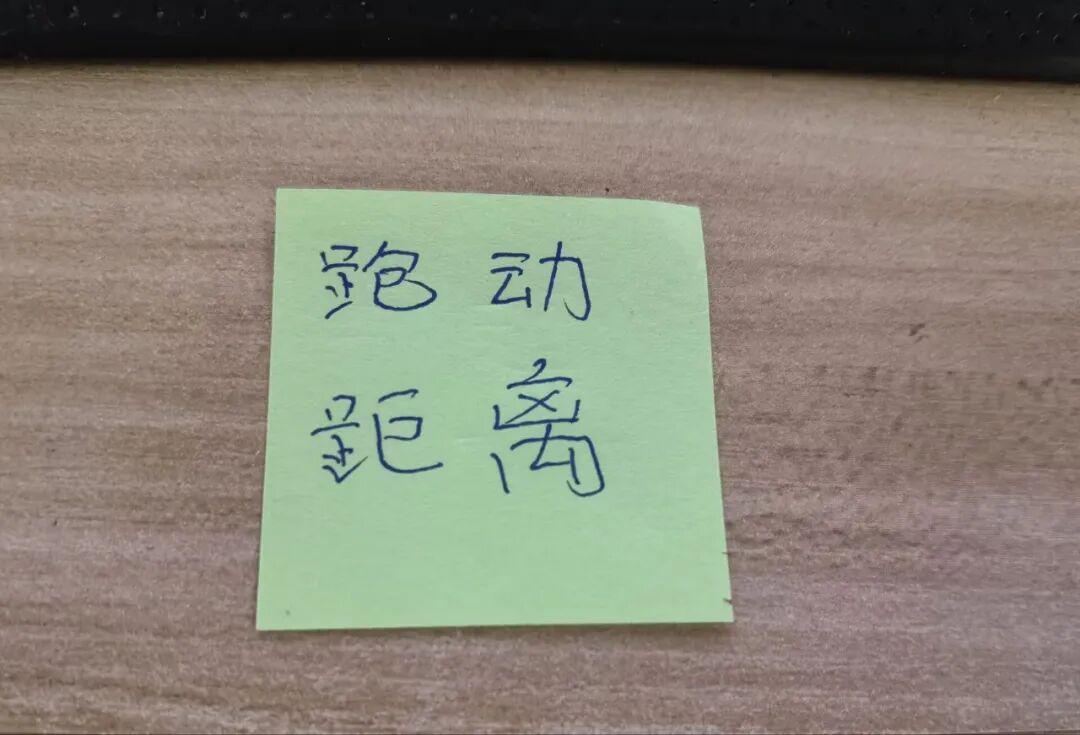 跑动
距离